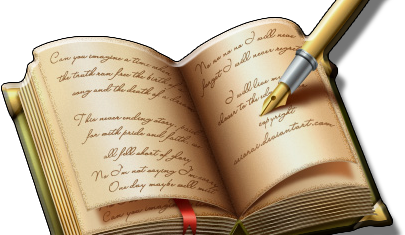 Can you imagine a time when
the truth ran free the birth of
song and the death of a dream
This never ending story
for with pride and faith
all fell short of glory
No I'm not saying I'm
One day maybe will
Can you imagine
No no no no I will never
forget I will never regret
I will live my
closer to the
copyright
.deviantart.com